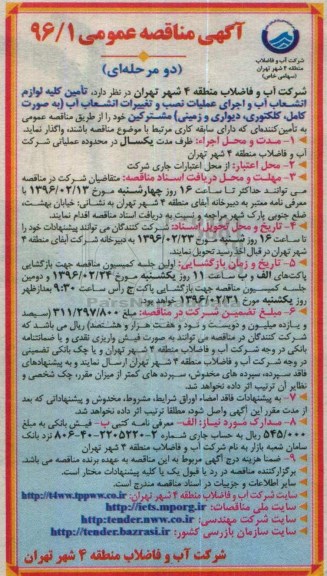 آگهی مناقصه عمومی ۹۶/۱
(دو مرحله‌ای)
شرکت آب و فاضلاب
منطقه ۴ شهر تهران
(سهامی خاص)
شرکت آب و فاضلاب منطقه ۴ شهر تهران در نظر دارد، تأمین کلیه لوازم
انشعاب آب و اجرای عملیات نصب و تغییرات انشعاب آب (به صورت
کامل، کلکتوری، دیواری و زمینی) مشترکین خود را از طریق مناقصه عمومی
به تأمین‌کننده‌ای که دارای سابقه کاری مرتبط با موضوع مناقصه باشند، واگذار نماید.
۱- مدت و محل اجراء: ظرف مدت یکسال در محدوده عملیاتی شرکت
آب و فاضلاب منطقه ۴ شهر تهران
۲- محل اعتبار: از محل اعتبارات جاری شرکت
۳- مهلت و محل دریافت اسناد مناقصه: متقاضیان شرکت در مناقصه
می توانند حداکثر تا ساعت ۱۶ روز چهارشنبه مورخ ۱۳۹۶/۰۲/۱۳ با
معرفی نامه معتبر به دبیرخانه آبفای منطقه ۴ شهر تهران به نشانی: خیابان بهشت،
ضلع جنوبی پارک شهر مراجعه و نسبت به دریافت اسناد مناقصه اقدام نمایند.
۴- تاریخ و محل تحویل اسناد: شرکت کنندگان می توانند پیشنهادات خود را
تا ساعت ۱۶ روز شنبه مورخ ۱۳۹۶/۰۲/۲۳ به دبیرخانه شرکت آبفای منطقه ۴
شهر تهران در قبال اخذ رسید تحویل نمایند.
۵- تاریخ و زمان بازگشایی: اولین جلسه کمیسیون مناقصه جهت بازگشایی
پاکت‌های الف و ب ساعت ۱۱ روز یکشنبه مورخ ۱۳۹۶/۰۲/۲۴ و دومین
جلسه کمیسیون مناقصه جهت بازگشایی پاکت ج رأس ساعت ۹:۳۰
روز یکشنبه مورخ ۱۳۹۶/۰۲/۳۱ خواهد بود.
۶- مبلغ تضمین شرکت در مناقصه: مبلغ ۳۱۱/۲۹۷/۸۰۰ (سیصد
و یازده میلیون و دویست و نود و هفت هزار و هشتصد) ریال می باشد که
شرکت کنندگان در مناقصه می توانند به صورت فیش واریزی نقدی و یا ضمانتنامه
بانکی در وجه شرکت آب و فاضلاب منطقه ۴ شهر تهران و یا چک بانکی تضمینی
در وجه شرکت آب و فاضلاب منطقه ۴ شهر تهران ارسال نمایند و به پیشنهادهای
فاقد سپرده، سپرده های مخدوش، سپرده های کمتر از میزان مقرر، چک شخصی و
نظایر آن ترتیب اثر داده نخواهد شد.
۷- به پیشنهادات فاقد امضاء اوراق شرایط، مشروط، مخدوش و پیشنهاداتی که بعد
از مدت مقرر این آگهی واصل شود، مطلقا ترتیب اثر داده نخواهد شد.
۸- مدارک مورد نیاز: الف- معرفی نامه کتبی ب- فیش بانکی به مبلغ
۵۴۵/۰۰۰ ریال به حساب جاری شماره ۲-۲۲۰۵۲۲۰-۴۰-۸۰۶ نزد بانک
سامان شعبه بازار به نام شرکت آب و فاضلاب منطقه ۴ شهر تهران
۹- ضمنا هزینه درج آگهی مربوط به این مناقصه به عهده برنده مناقصه می باشد.
برگزارکننده مناقصه در رد یا قبول یک یا کلیه پیشنهادات مختار است.
سایر اطلاعات و جزییات در اسناد مناقصه مندرج است.
سایت شرکت آب و فاضلاب منطقه ۴ شهر تهران: http://t4ww.tppww.co.ir
سایت ملی مناقصات: http://iets.mporg.ir
سایت شرکت مهندسی: http://tender.nww.co.ir
سایت سازمان بازرسی کشور: http://tender.bazrasi.ir
شرکت آب و فاضلاب منطقه ۴ شهر تهران